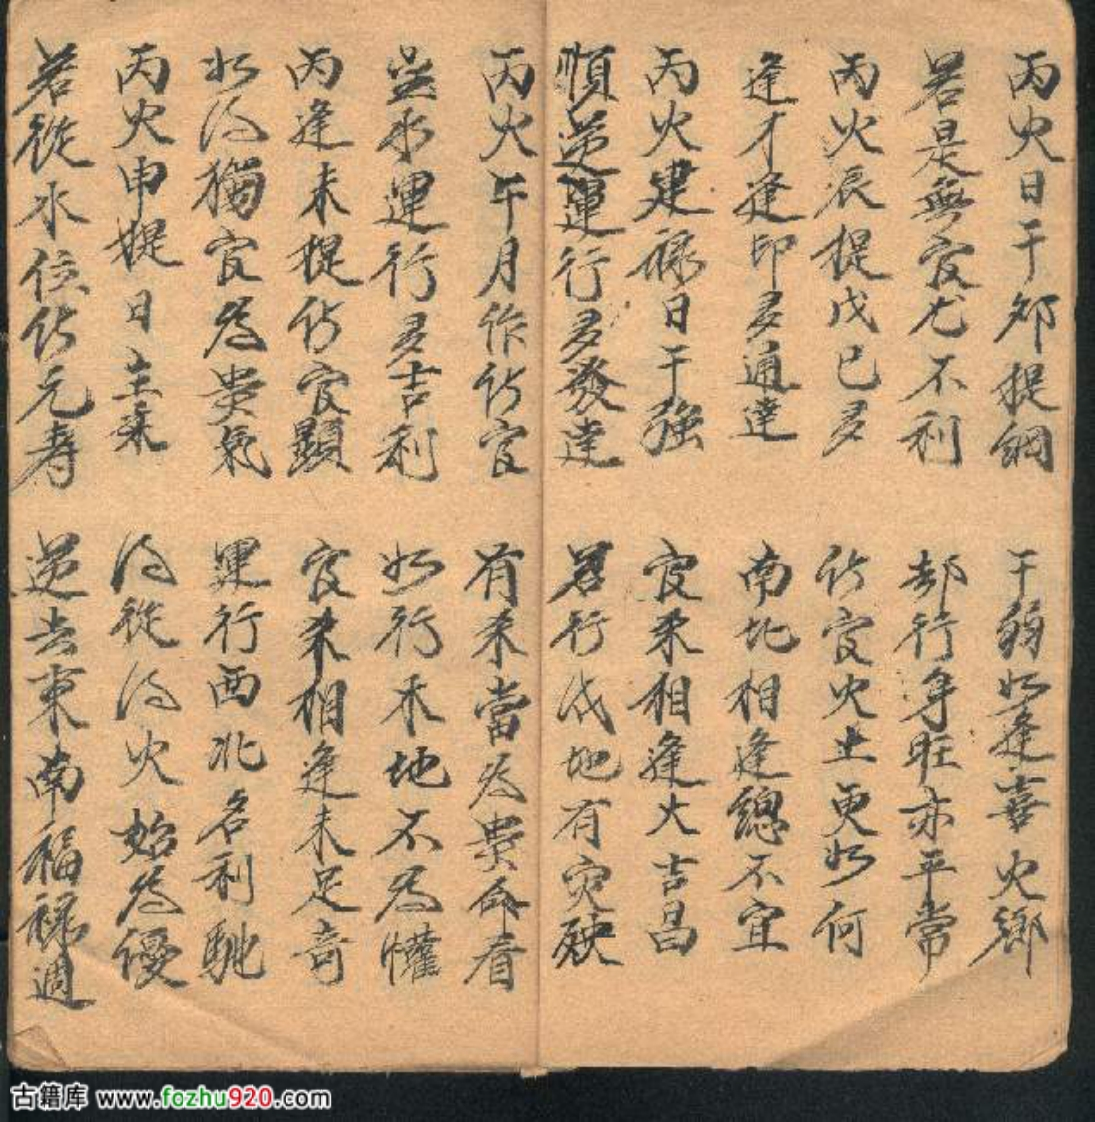 丙火日干夘提綱 干弱如逢喜火鄉
若是無官尤不利 却行身旺亦平常
丙火辰提戊己多 伤官火土更如何
逢才逢印多通達 南北相逢總不宜
丙火建禄日干強 官來相逢大吉昌
順逆運行多發達 若行戌地有灾殃
丙火午月作伤官 有來當為貴命看
並水運行多吉利 如行木地不為懽
丙逢未提伤官顯 官來相逢未足奇
如得獨官為贵氣 運行西北名利馳
丙火申提日主柔 得從得火始為優
若從水位伤元寿 逆去東南福禄週
古籍库 www.fozhu920.com